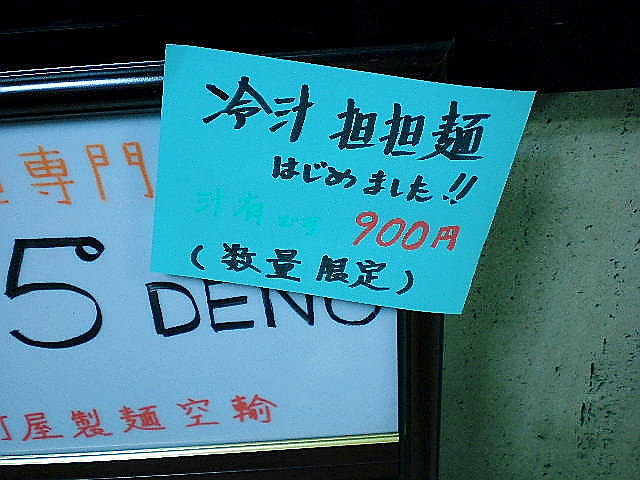 冷汁 担担麺
はじめました!!
汁有です 900円
(数量 限定)
専門
5° DENO
屋製麺空輸